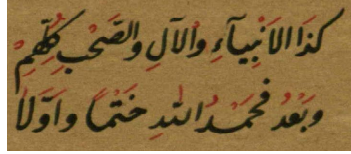 كَذَا الاَنْبِيَآءِ وَالآلِ وَالصَّحْبِ كُلِّهِمْ
وَبَعْدُ فَحَمْدُ اللهِ خَتْمًا وَاَوَّلَا